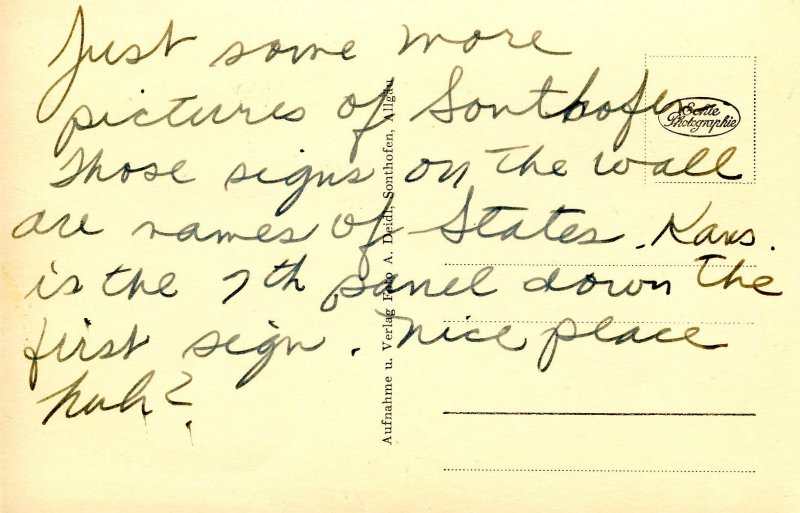 Just some more
pictures of Sonthofen
Those signs on the wall
are names of States. Kans.
is the 7th panel down the
first sign. Nice place
huh?
Aufnahme u. Verlag Foto A. Deidl, Sonthofen, Allgäu
Echte
Photographie